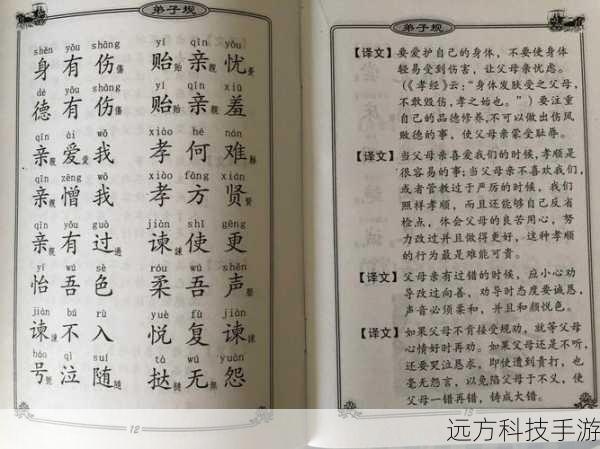 弟子规
shēn yǒu shāng yí qīn yōu
身有伤傷 贻貽亲親忧憂
dé yǒu shāng yí qīn xiū
德有伤傷 贻貽亲親羞
qīn ài wǒ xiào hé nán
亲親爱愛我 孝何难難
qīn zēng wǒ xiào fāng xián
亲親憎我 孝方贤賢
qīn yǒu guò jiàn shǐ gēng
亲親有过過 谏諫使更
yí wú sè róu wú shēng
怡吾色 柔吾声聲
jiàn bú rù yuè fù jiàn
谏諫不入 悦复復谏諫
háo qì suí tà wú yuàn
号號泣随隨 挞撻无無怨
12
弟子规
【译文】要爱护自己的身体，不要使身体
轻易受到伤害，让父母亲忧虑。
（《孝经》云：“身体发肤受之父母，
不敢毁伤，孝之始也。”）要注重
自己的品德修养，不可以做出伤风
败德的事，使父母亲蒙受耻辱。
【译文】当父母亲喜爱我们的时候，孝顺是
很容易的事；当父母亲不喜欢我们，
或者管教过于严厉的时候，我们
照样孝顺，而且还能够自己反省
检点，体会父母的良苦用心，努
力改过并且做得更好，这种孝顺
的行为最是难能可贵。
【译文】父母亲有过错的时候，应小心劝
导改过向善，劝导时态度要诚恳，
声音必须柔和，并且和颜悦色。
【译文】如果父母不肯接受规劝，就等父母
心情好时再劝。如果父母还是不听，
还要哭泣恳求，即使遭到责打，也
毫无怨言，以免陷父母于不义，使
父母一错再错，铸成大错。
13
远方科技手游